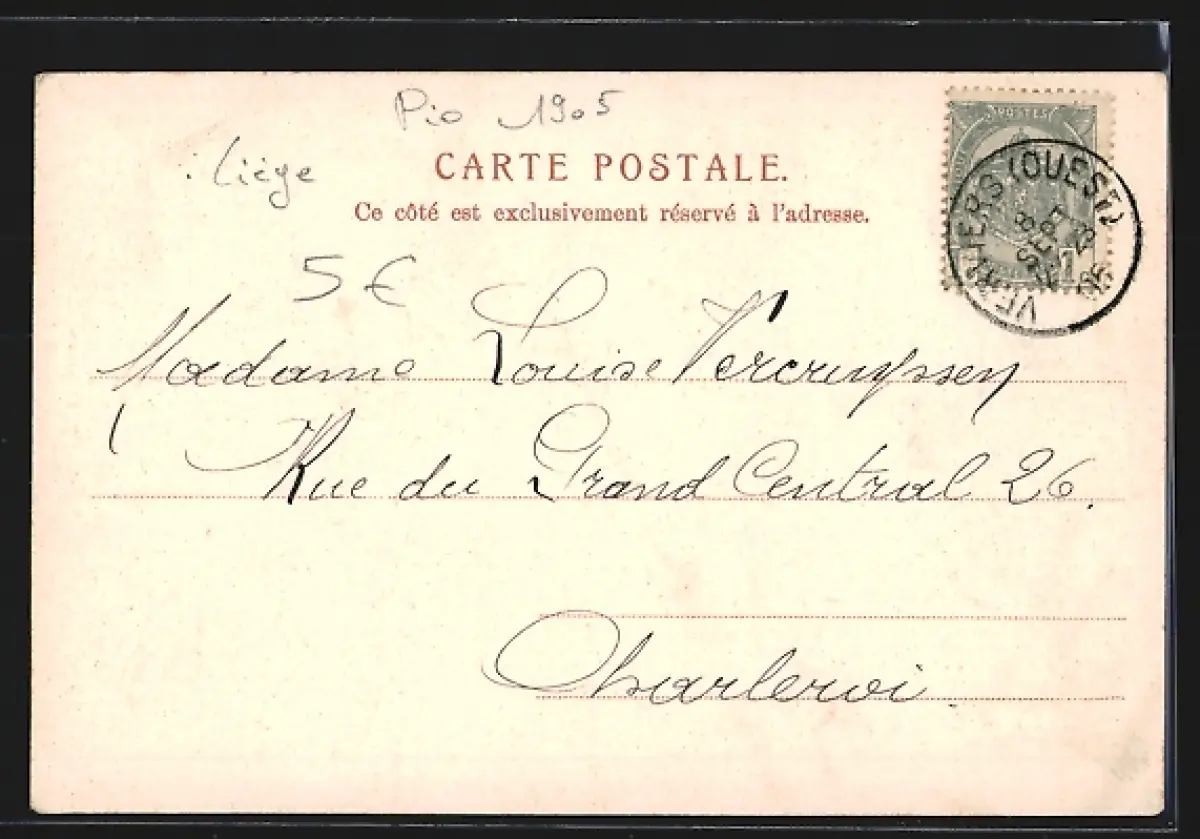 Pio 1905
: Liège
CARTE POSTALE.
Ce côté est exclusivement réservé à l'adresse.
POSTES
VERVIERS (OUEST)
8
SEPT
13
05
1
5 €
Madame Louise Vercruyssen
Rue du Grand Central 26.
Charleroi.